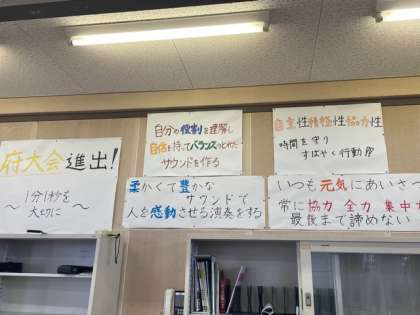 府大会進出!
〜1分1秒を
大切に〜
自分の役割を理解し
自信を持ってバランスのとれた
サウンドを作る
自主性積極性協力性
時間を守り
すばやく行動!!
柔かくて豊かな
サウンドで
人を感動させる演奏をする
いつも元気にあいさ
常に協力 全力 集中力
最後まで諦めない